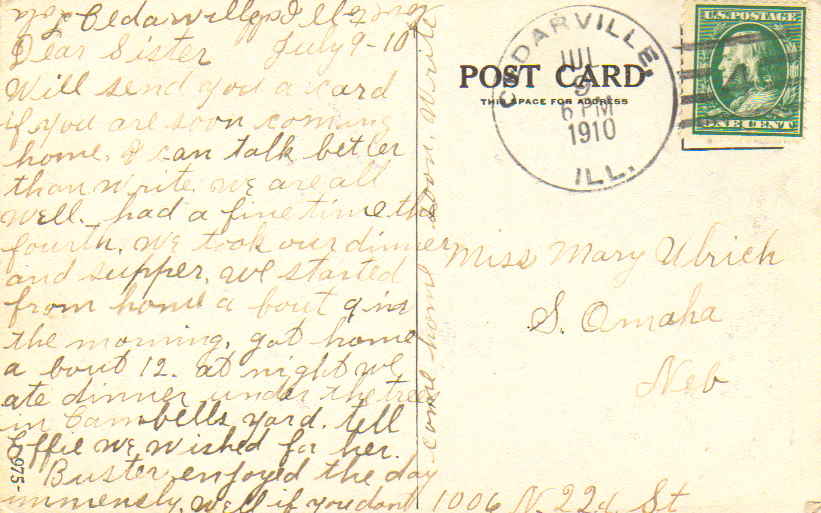 Cedarville Ill
Dear Sister July 9-10
Will send you a card
if you are soon coming
home. I can talk better
than write. we are all
well. had a fine time the
fourth. we took our dinner
and supper, we started
from home a bout 9 in
the morning, got home
a bout 12. at night we
ate dinner under the trees
in Cambells yard. tell
Effie we wished for her.
Buster enjoyed the day
immensely. well if you dont
come home soon write
975-
POST CARD
THIS SPACE FOR ADDRESS
CEDARVILLE,
JUL
9
6 PM
1910
ILL.
U.S. POSTAGE
ONE CENT
Miss Mary Ulrich
S. Omaha
Neb
1006 N. 22d St